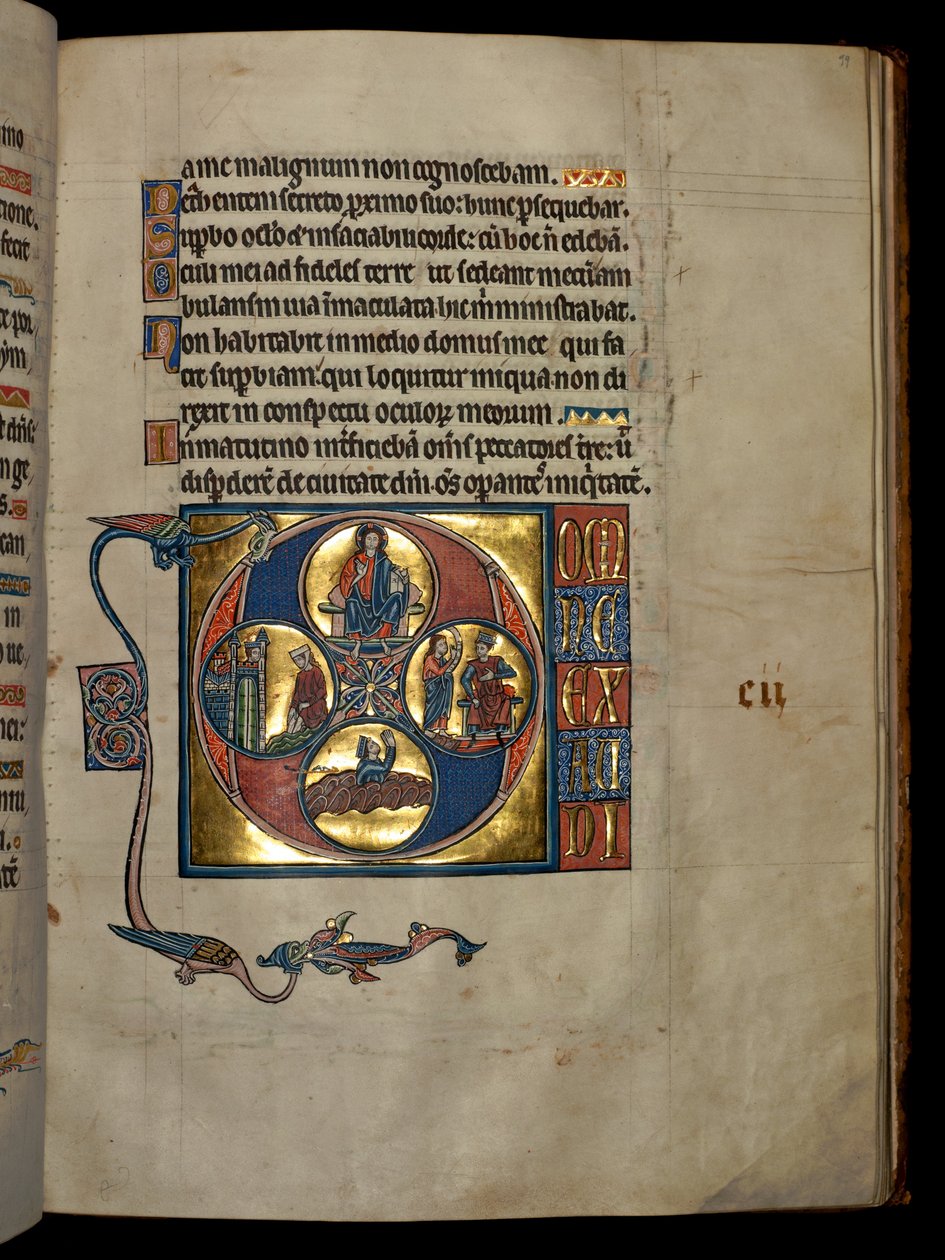 99
a me malignum non cognoscebam.
Detħentem secreto ꝓximo suo: hunc ꝑsequebar.
Suꝑbo oclo & insaciabili corde: cū hoc n̄ edebā.
Oculi mei ad fideles terre ut sedeant mecū am
bulans in uia īmaculata hic m̄ ministrabat.
Non habitabit in medio domus mee qui fa
cit suꝑbiam: qui loquitur iniqua non di
rexit in conspectu oculoꝝ meorum.
In matutino int̄ficiebā om̄s peccatores t̄re: ut
disꝑderē de ciuitate dn̄i om̄s oꝑantes iniq̇tatē.
DOM
NE
EX
AU
DI
cii